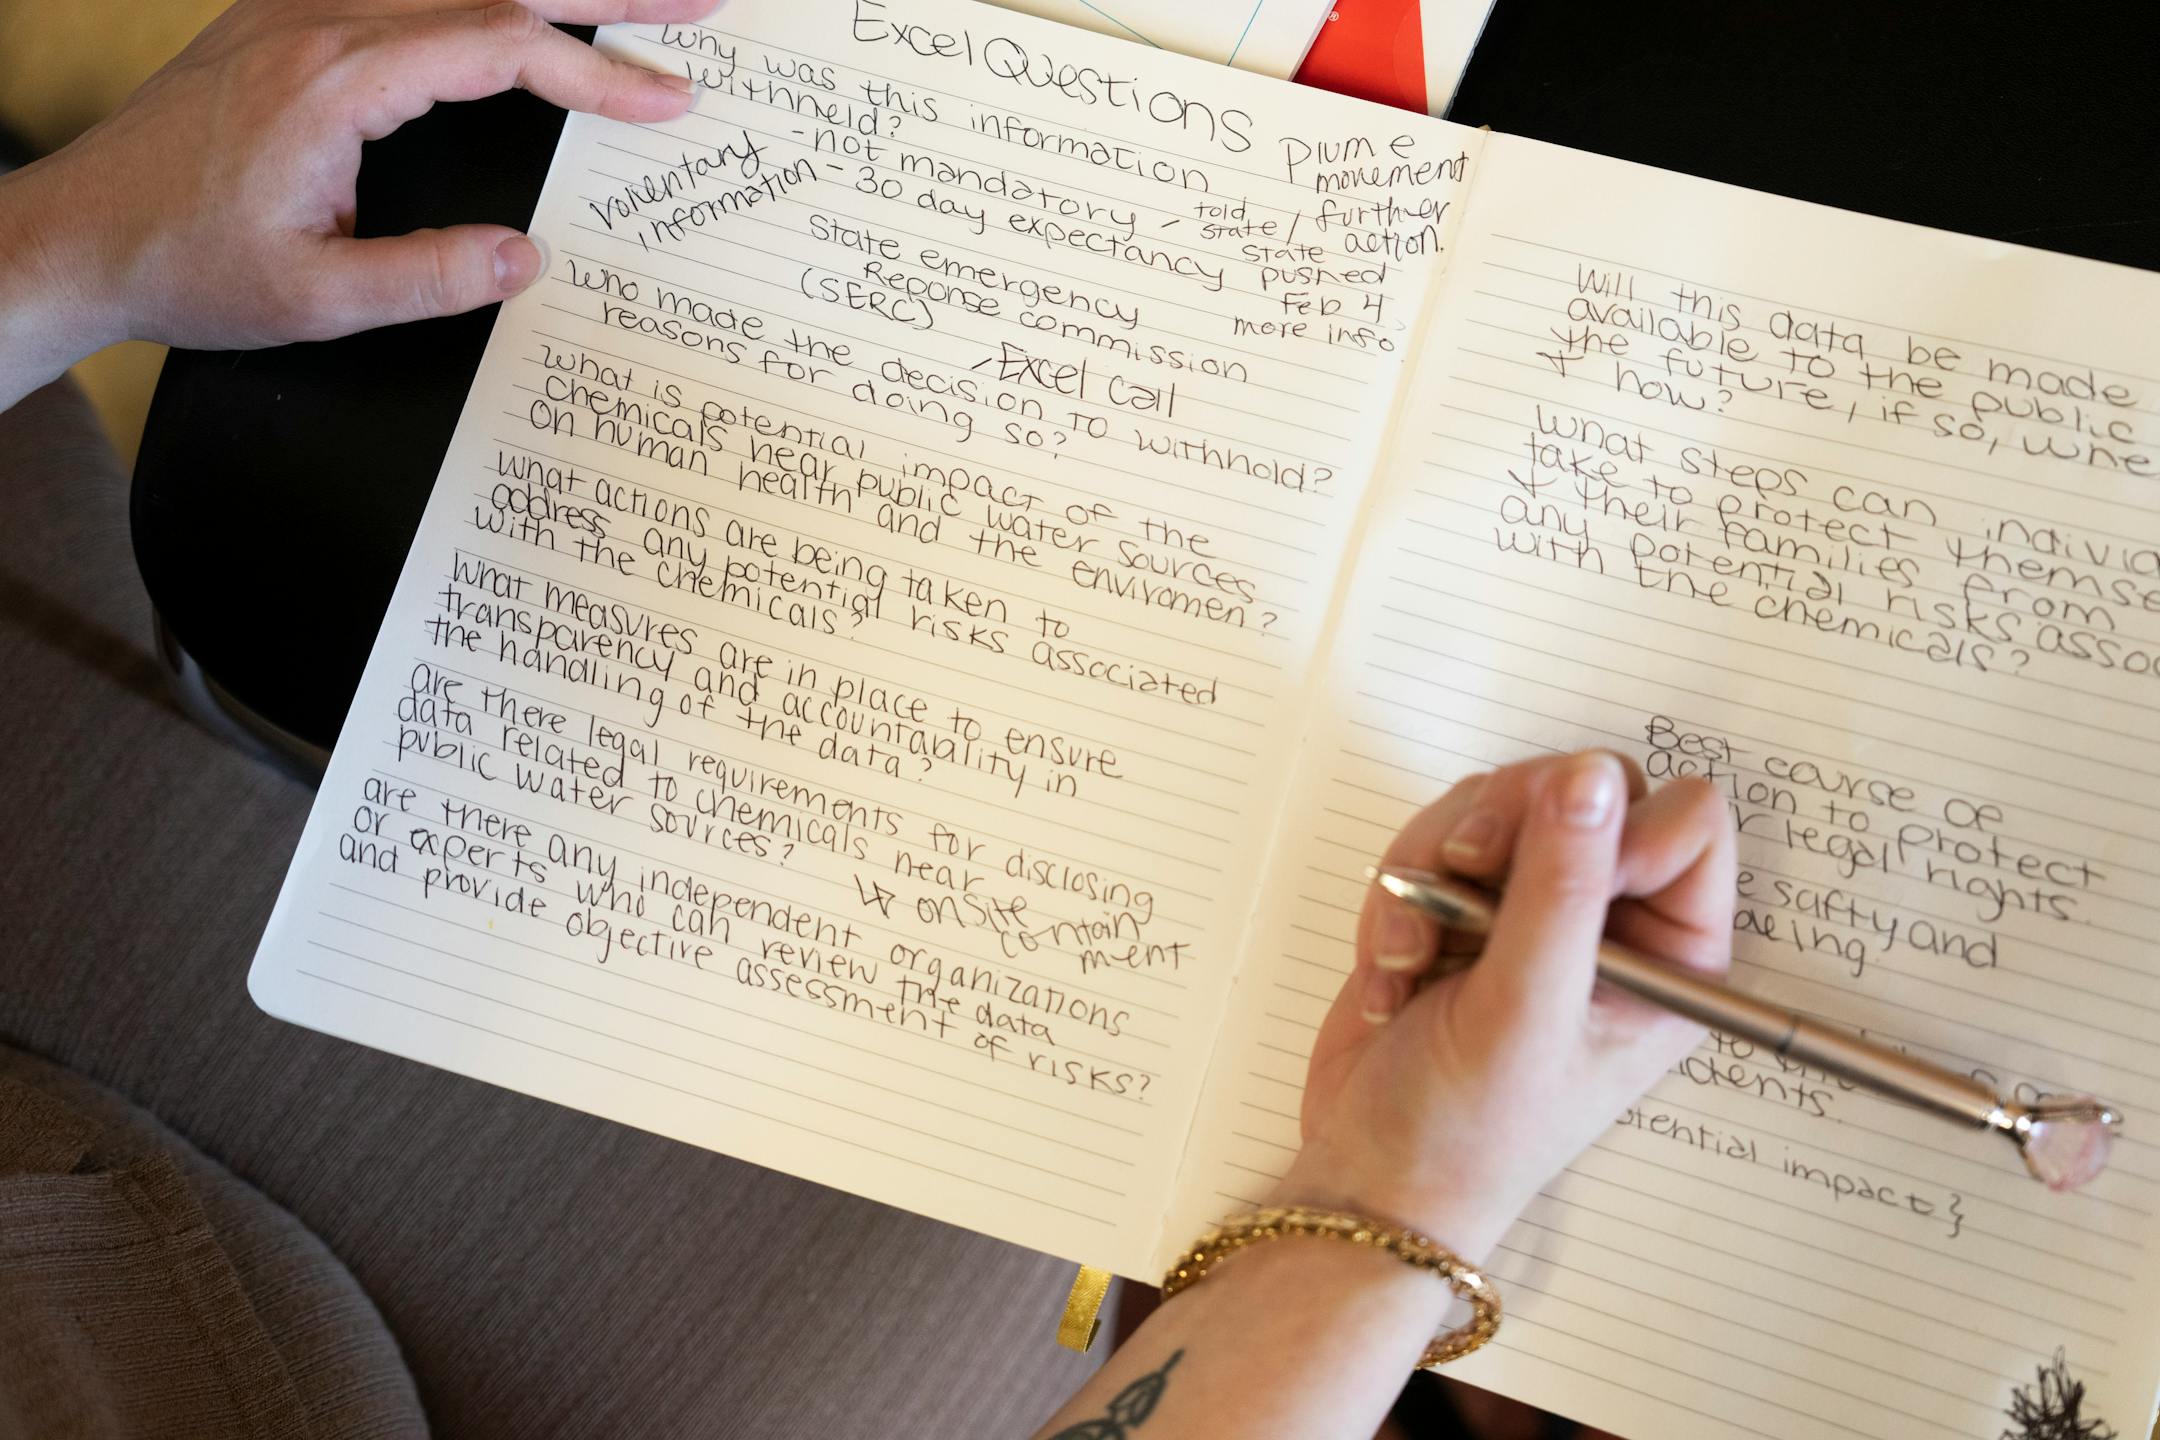 Excel Questions
Why was this information
withheld?
-not mandatory / told state /
- 30 day expectancy
volentary
information
Plume
movement
further
action.
state
pushed
Feb 4
more info
State emergency
Reponse commission
(SERC)
-Excel call
Who made the decision to withhold?
reasons for doing so?
What is potential impact of the
chemicals near public water sources
on human health and the enviromen?
What actions are being taken to
address any potential risks associated
with the chemicals?
What measures are in place to ensure
transparency and accountability in
the handling of the data?
are there legal requirements for disclosing
data related to chemicals near
public water sources?
onsite
contain
ment
are there any independent organizations
or experts who can review the data
and provide objective assessment of risks?
Will this data be made
available to the public
the future, if so, whe
+ how?
What steps can individ
take to protect themse
+ their families from
any potential risks assoc
with the chemicals?
Best course of
action to protect
r legal rights.
e safty and
being
to
idents.
otential impact}